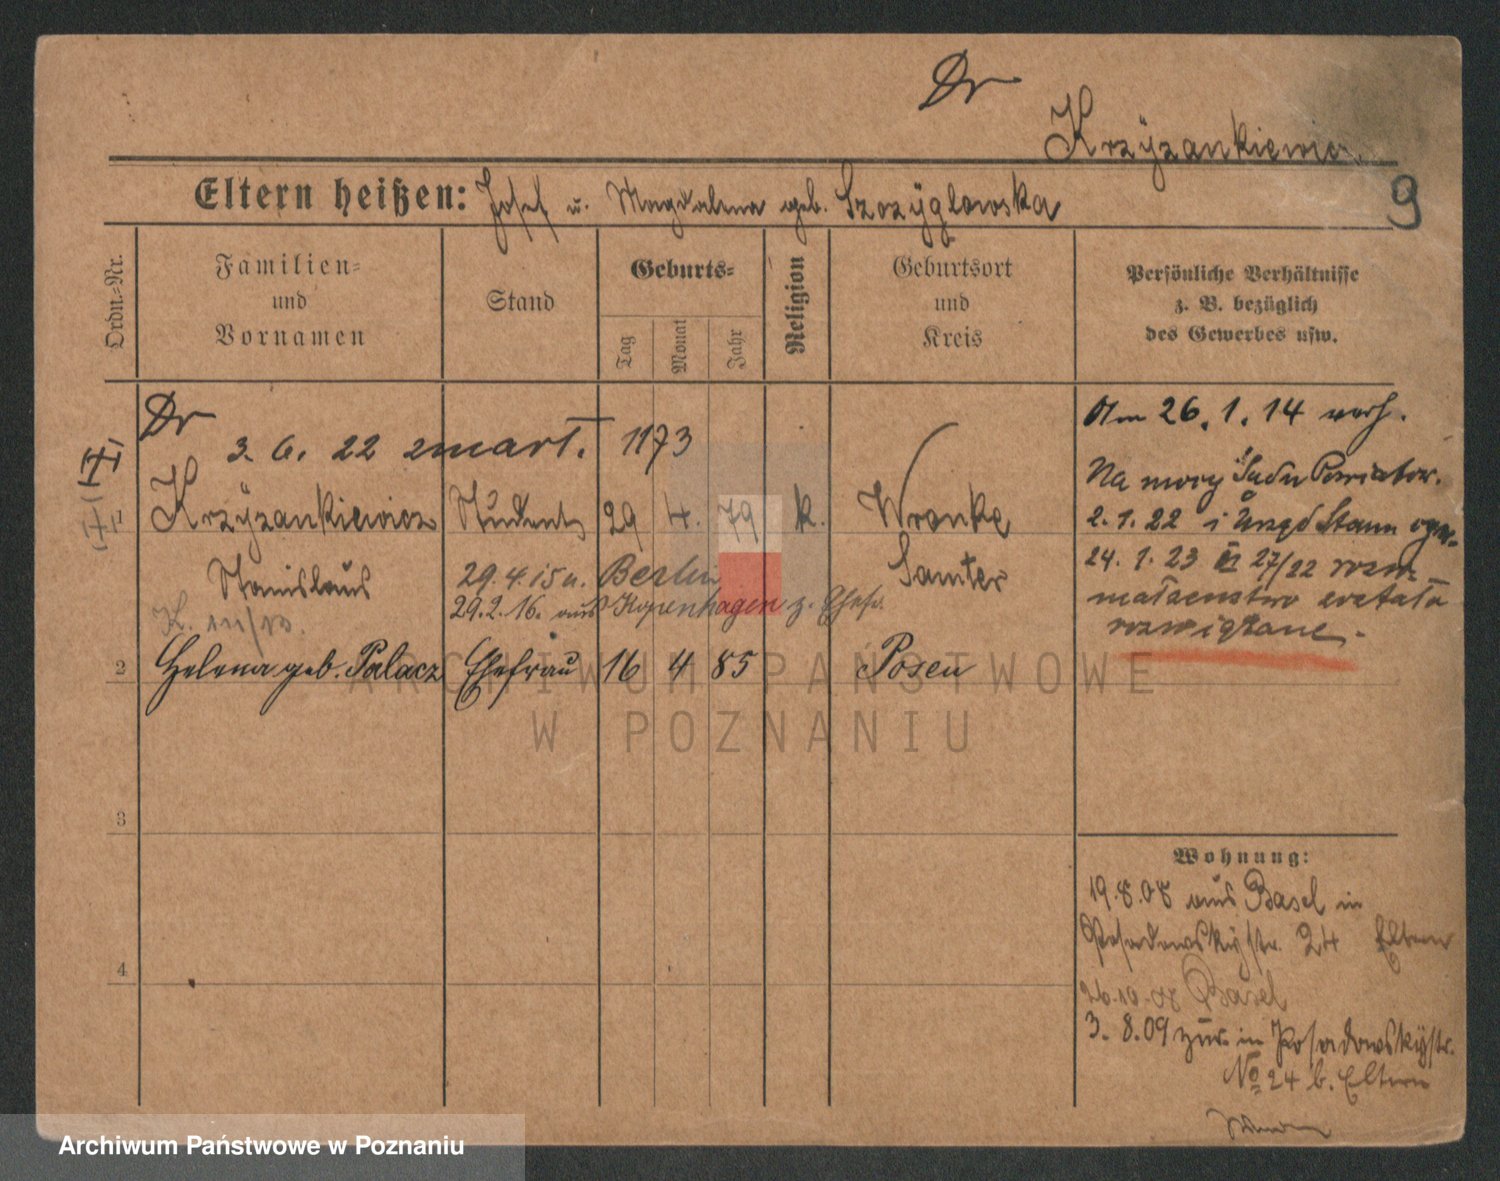 Dr
Krzyżankiewicz
9
Eltern heißen: Josef u. Magdalena geb. Szczyglowska
Ordn.-Nr.
Familien-
und
Vornamen
Stand
Geburts-
Tag
Monat
Jahr
Religion
Geburtsort
und
Kreis
Persönliche Verhältnisse
z. B. bezüglich
des Gewerbes usw.
Dr
3. 6. 22 zmarł. 1173
1 Krzyżankiewicz Student 29 4. 79 k. Wronke
Stanislaus
Samter
29.4.15 n. Berlin
29.2.16. aus Kopenhagen z. Ehefr.
2 Helena geb. Palacz Ehefrau 16 4 85 Posen
3
4
Am 26. 1. 14 verh.
Na mocy Sadu Powiatow.
2. 1. 22 i Urzęd Stanu
24. 1. 23 27/22
małżenstwo zostało
rozwiązane.
Wohnung:
19.8.08 aus Basel in
Posadowskystr. 24 Eltern
26.10.08 Basel
3. 8.09 zur. in Posadowskystr.
No 24 b. Eltern
ARCHIWUM PAŃSTWOWE
W POZNANIU
Archiwum Państwowe w Poznaniu